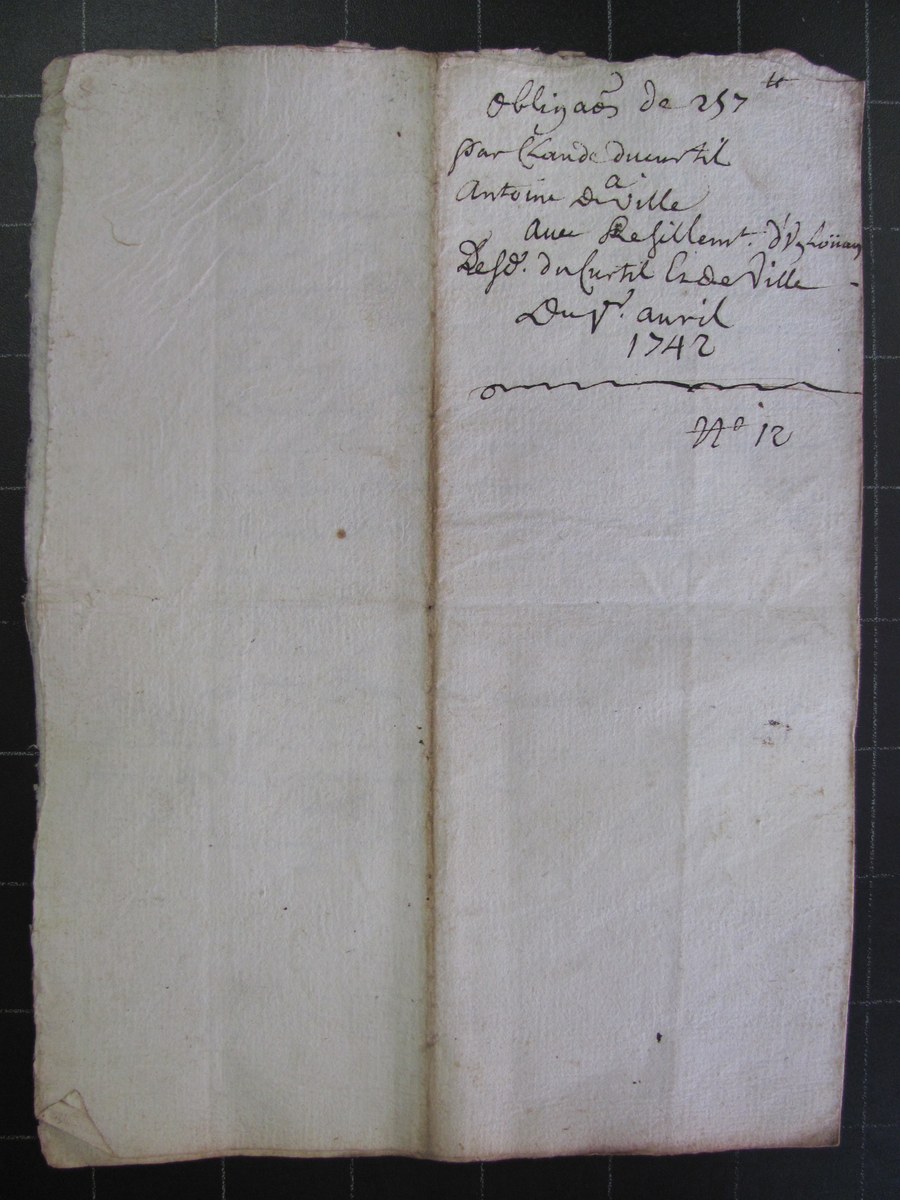 obligaõn de 257 tt
par Claude ducurtil
a
Antoine De Ville
avec Resillemt. d'
Lesd. du Curtil Et De Ville
Du pr. avril
1742
No 12